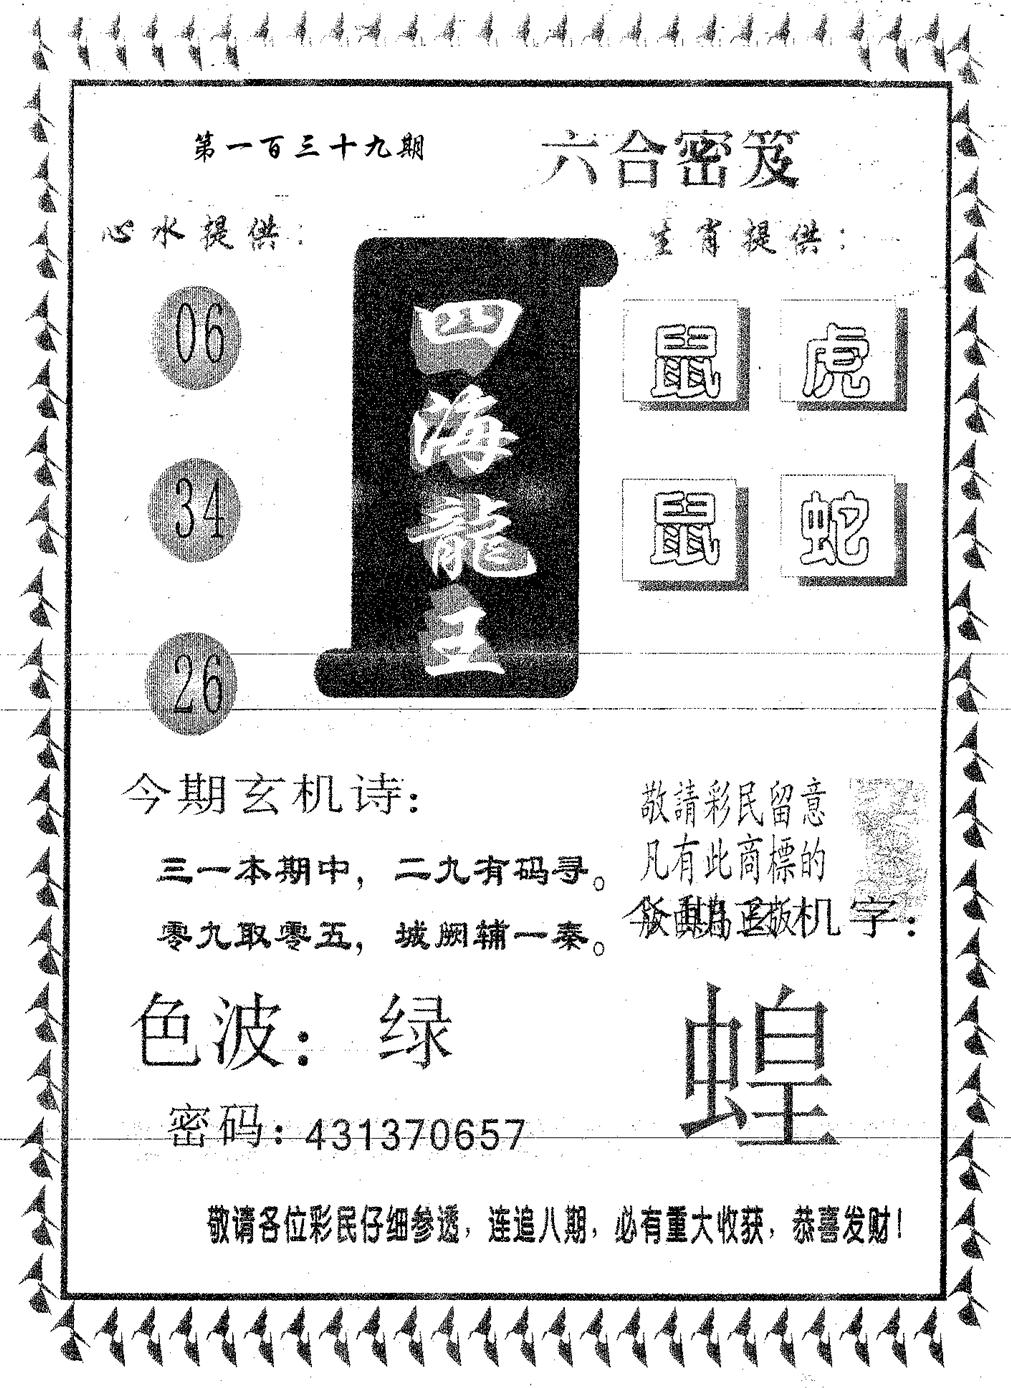 第一百三十九期
六合密笈
心水提供：
生肖提供：
06
34
26
四海龍王
鼠 虎
鼠 蛇
今期玄机诗：
三一本期中，二九有码寻。
零九取零五，城阙辅一秦。
敬請彩民留意
凡有此商標的
版面為正版
今期玄机字：
蝗
色波：绿
密码：431370657
敬请各位彩民仔细参透，连追八期，必有重大收获，恭喜发财！